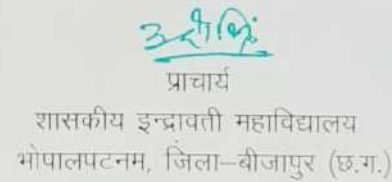 प्राचार्य
शासकीय इन्द्रावती महाविद्यालय
भोपालपटनम, जिला–बीजापुर (छ.ग.)